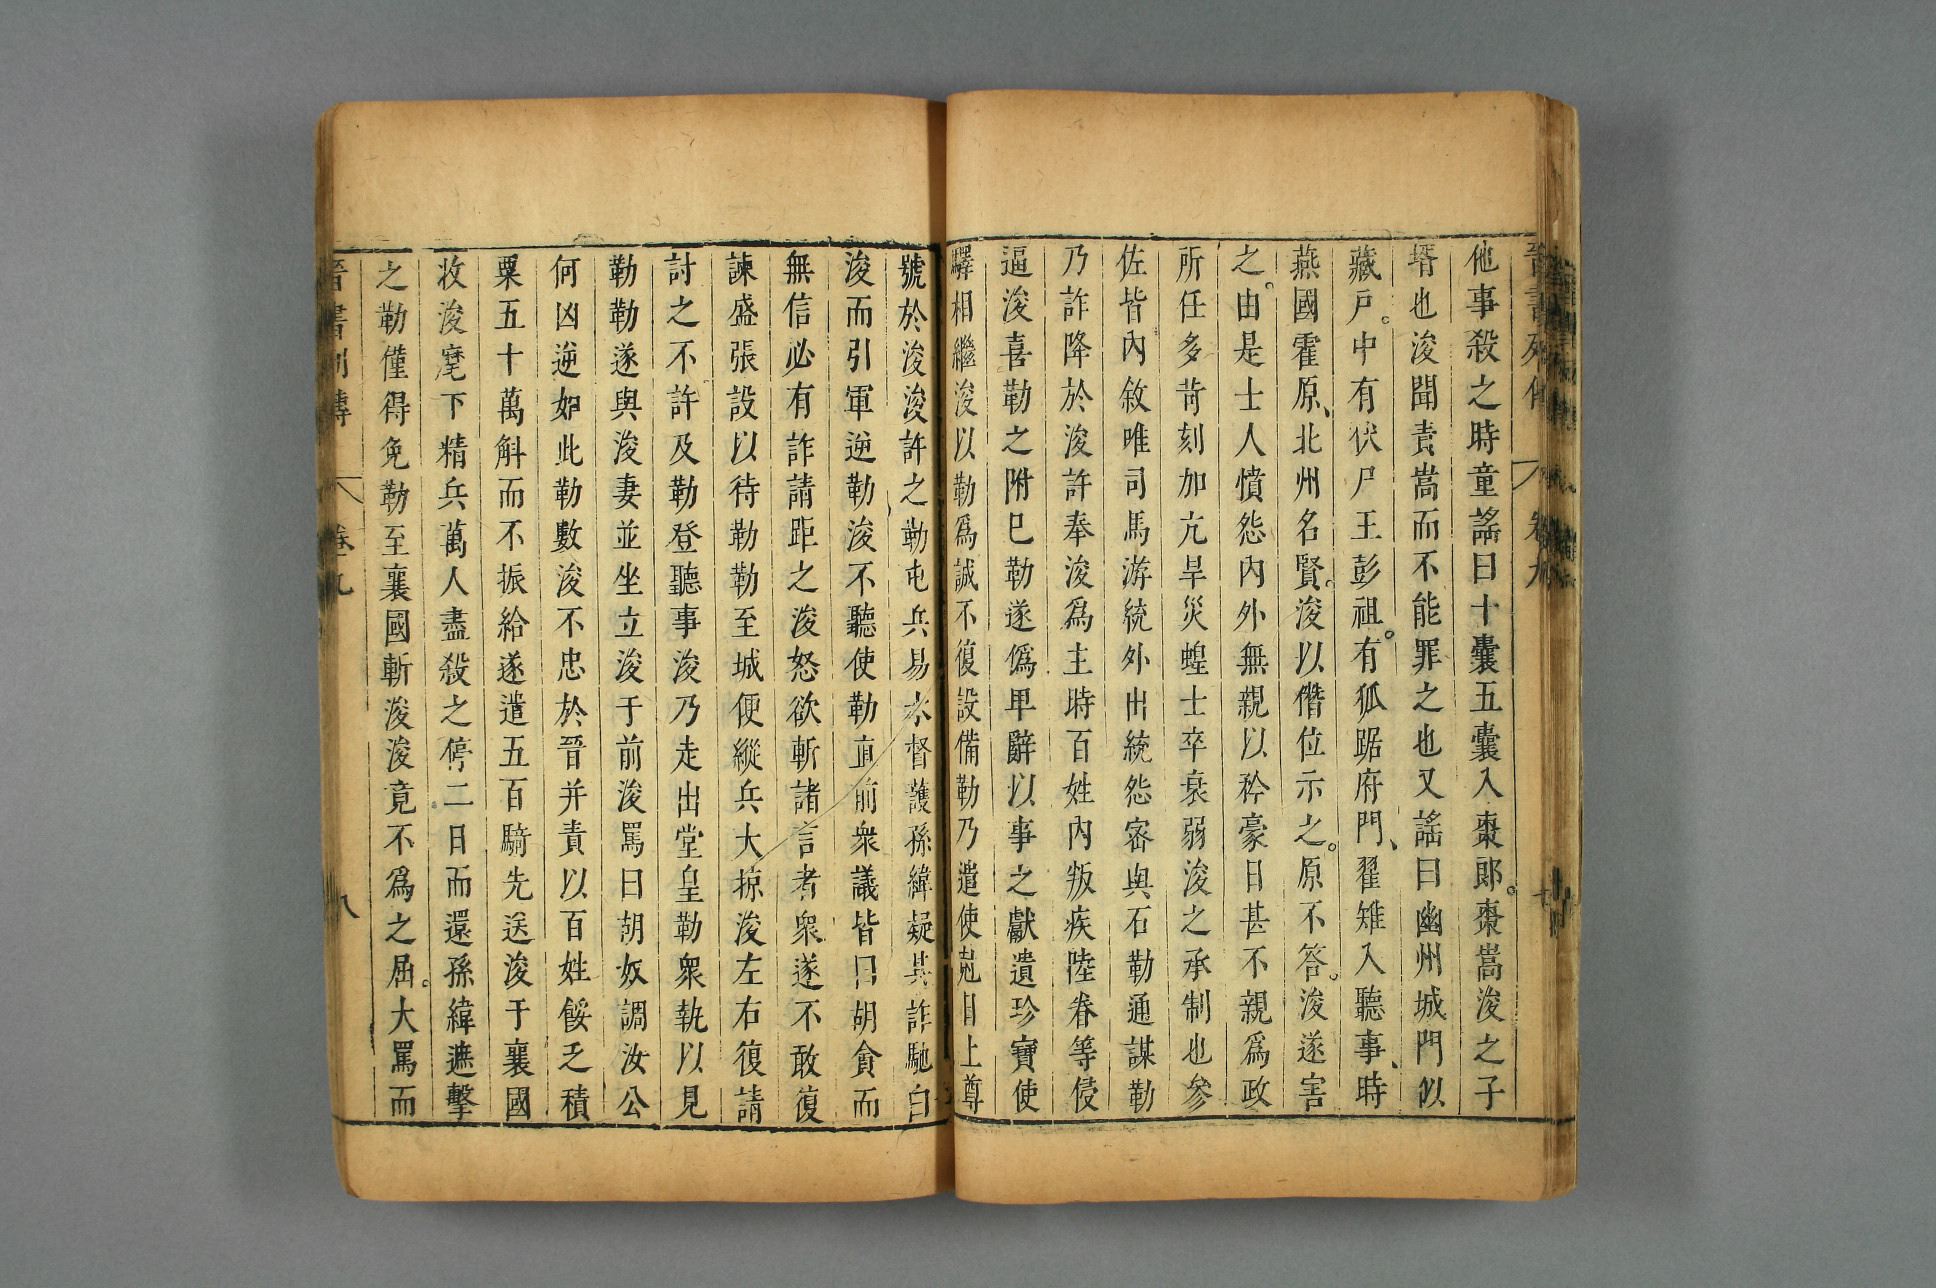 晉書列傳 卷九 七
他事殺之時童謠曰十囊五囊入棗郎。棗嵩浚之子
壻也浚聞責嵩而不能罪之也又謠曰幽州城門似
藏戶。中有伏尸王彭祖。有狐踞府門、翟雉入聽事、時
燕國霍原、北州名賢。浚以僭位示之。原不答。浚遂害
之。由是士人憤怨內外無親以矜豪日甚不親爲政
所任多苛刻加亢旱災蝗士卒衰弱浚之承制也參
佐皆內敘唯司馬游統外出統怨密與石勒通謀勒
乃詐降於浚許奉浚爲主時百姓內叛疾陸眷等侵
逼浚喜勒之附巳勒遂僞卑辭以事之獻遺珍寶使
驛相繼浚以勒爲誠不復設備勒乃遣使剋日上尊
號於浚浚許之勒屯兵易水督護孫緯疑其詐馳白
浚而引軍逆勒浚不聽使勒直前衆議皆曰胡貪而
無信必有詐請距之浚怒欲斬諸言者衆遂不敢復
諫盛張設以待勒勒至城便縱兵大掠浚左右復請
討之不許及勒登聽事浚乃走出堂皇勒衆執以見
勒勒遂與浚妻並坐立浚于前浚罵曰胡奴調汝公
何凶逆如此勒數浚不忠於晉并責以百姓餒乏積
粟五十萬斛而不振給遂遣五百騎先送浚于襄國
收浚麾下精兵萬人盡殺之停二日而還孫緯遮擊
之勒僅得免勒至襄國斬浚浚竟不爲之屈。大罵而
晉書列傳 卷九 八